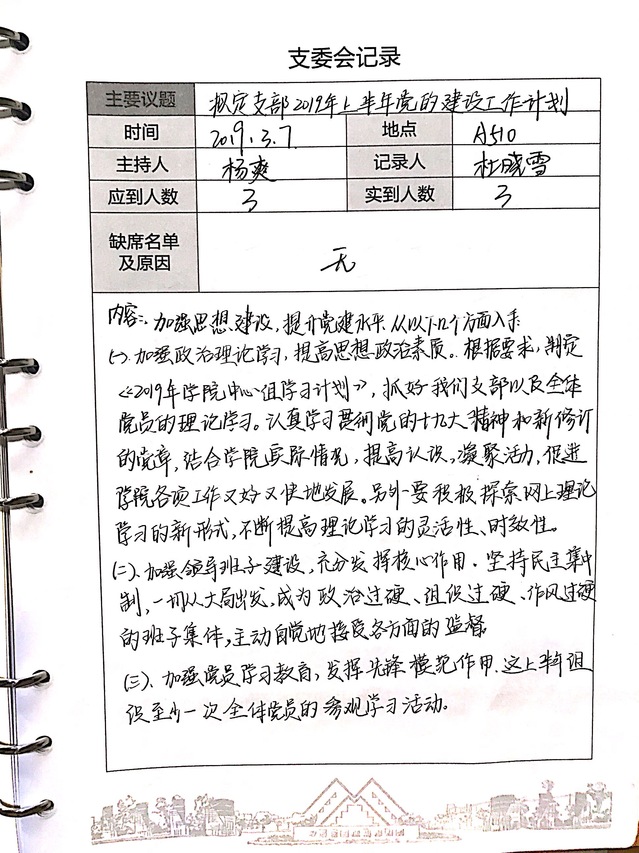 支委会记录
主要议题 拟定支部2019年上半年党的建设工作计划
时间 2019.3.7. 地点 A510
主持人 杨爽 记录人 杜晓雪
应到人数 3 实到人数 3
缺席名单
及原因 无
内容:、加强思想建设,提升党建水平.从以下几个方面入手
(一).加强政治理论学习,提高思想政治素质。根据要求,制定
《2019年学院中心组学习计划》,抓好我们支部以及全体
党员的理论学习。认真学习贯彻党的十九大精神和新修订
的党章,结合学院实际情况,提高认识,凝聚活力,促进
学院各项工作又好又快地发展。另外要积极探索网上理论
学习的新形式,不断提高理论学习的灵活性、时效性。
(二)、加强领导班子建设,充分发挥核心作用.坚持民主集中
制,一切从大局出发,成为政治过硬、组织过硬、作风过硬
的班子集体,主动自觉地接受各方面的监督.
(三)、加强党员学习教育,发挥先锋模范作用.这上半年组
织至少一次全体党员的参观学习活动。